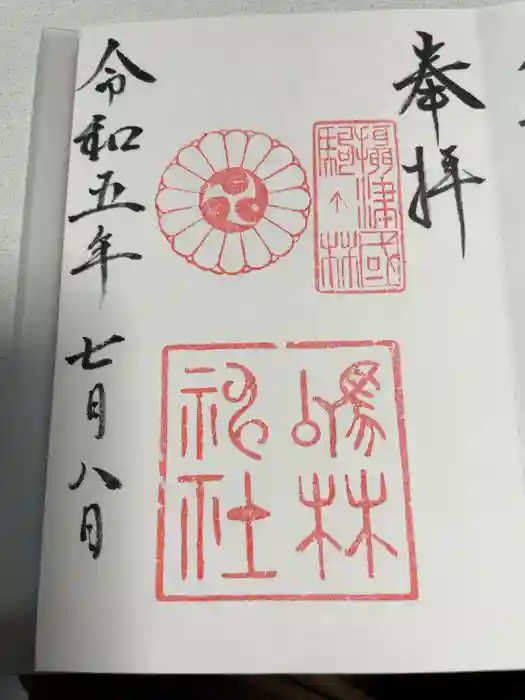 奉拝
攝津國
駒ヶ林
駒林
神社
令和五年七月八日